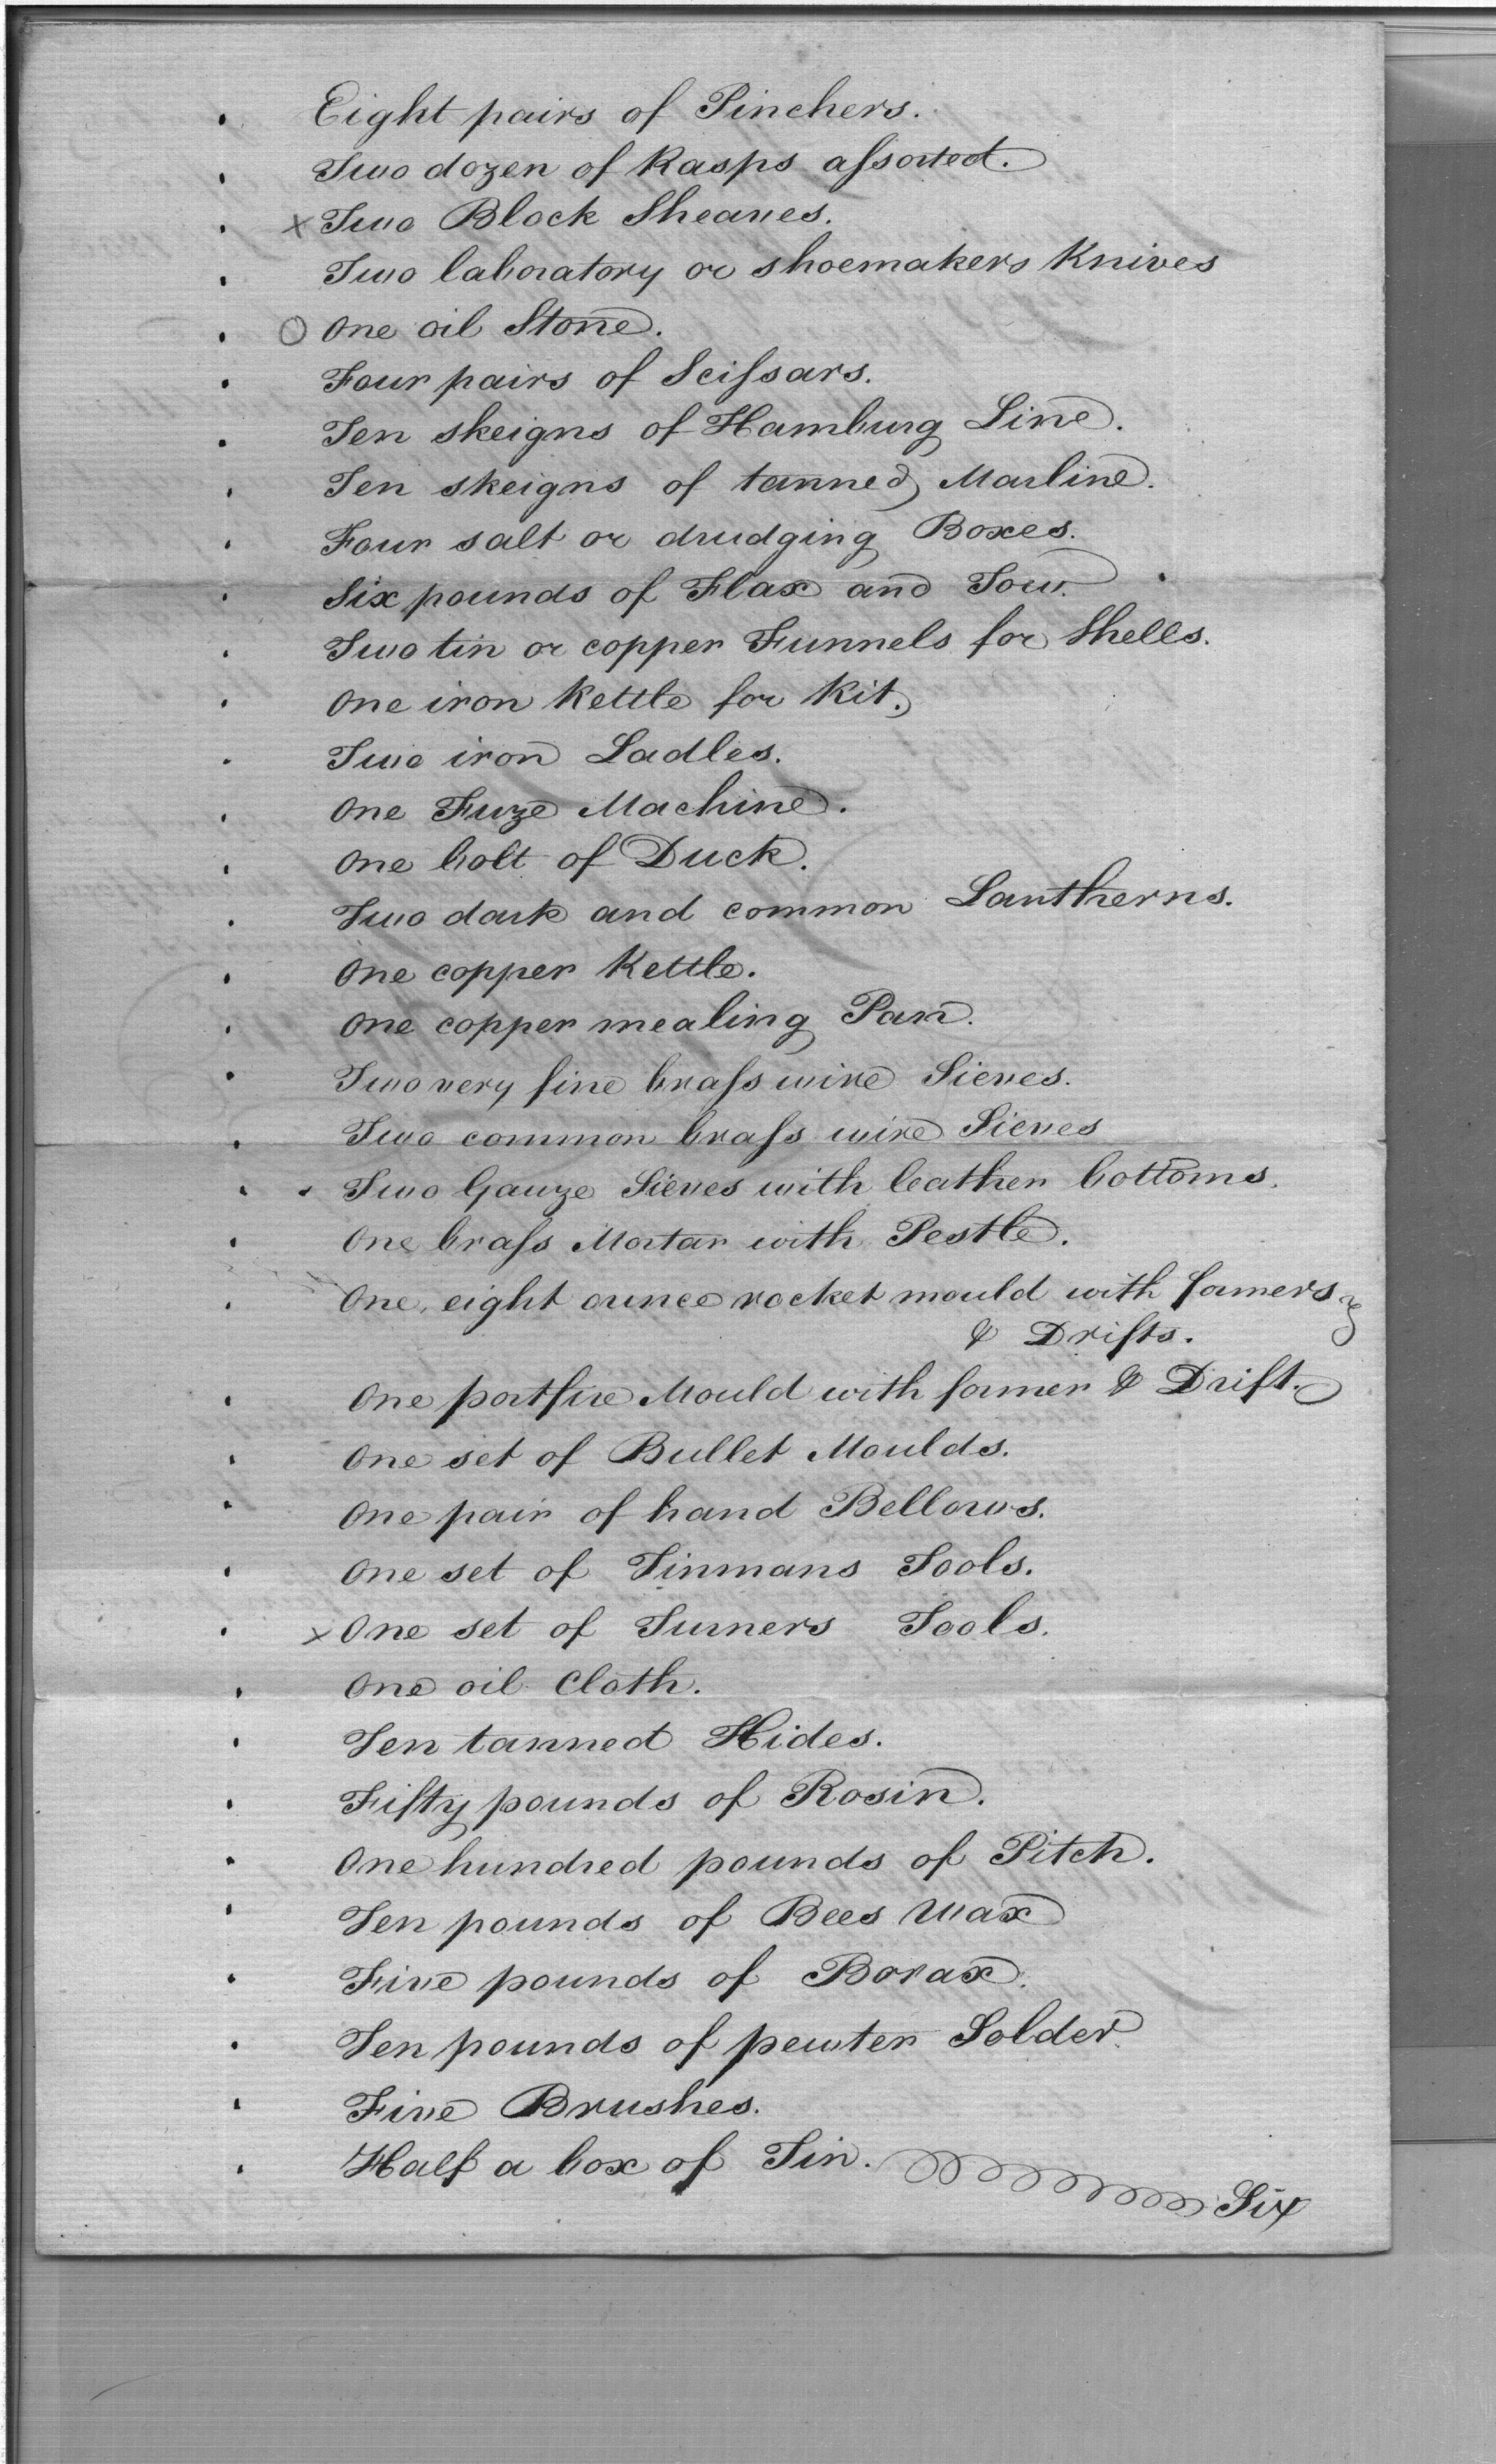 Eight pairs of Pinchers.
Two dozen of Rasps assorted.
x Two Block Sheaves.
Two laboratory or shoemakers Knives
O One oil Stone.
Four pairs of Scissars.
Ten skeigns of Hamburg Line.
Ten skeigns of tanned Marline.
Four salt or drudging Boxes.
Six pounds of Flax and Tow.
Two tin or copper Funnels for Shells.
One iron Kettle for Kit.
Two iron Ladles.
One Fuze Machine.
One bolt of Duck.
Two dark and common Lantherns.
One copper Kettle.
One copper mealing Pan.
Two very fine brass wire Sieves.
Two common brass wire Sieves
Two Gauze Sieves with leather bottoms.
One brass Mortar with Pestle.
One, eight ounce rocket mould with formers
& Drifts.
One portfire Mould with former & Drift.
One set of Bullet Moulds.
One pair of hand Bellows.
One set of Tinmans Tools.
x One set of Turners Tools.
One oil Cloth.
Ten tanned Hides.
Fifty pounds of Rosin.
One hundred pounds of Pitch.
Ten pounds of Bees Wax
Five pounds of Borax.
Ten pounds of pewter Solder.
Five Brushes.
Half a box of Tin.
Six